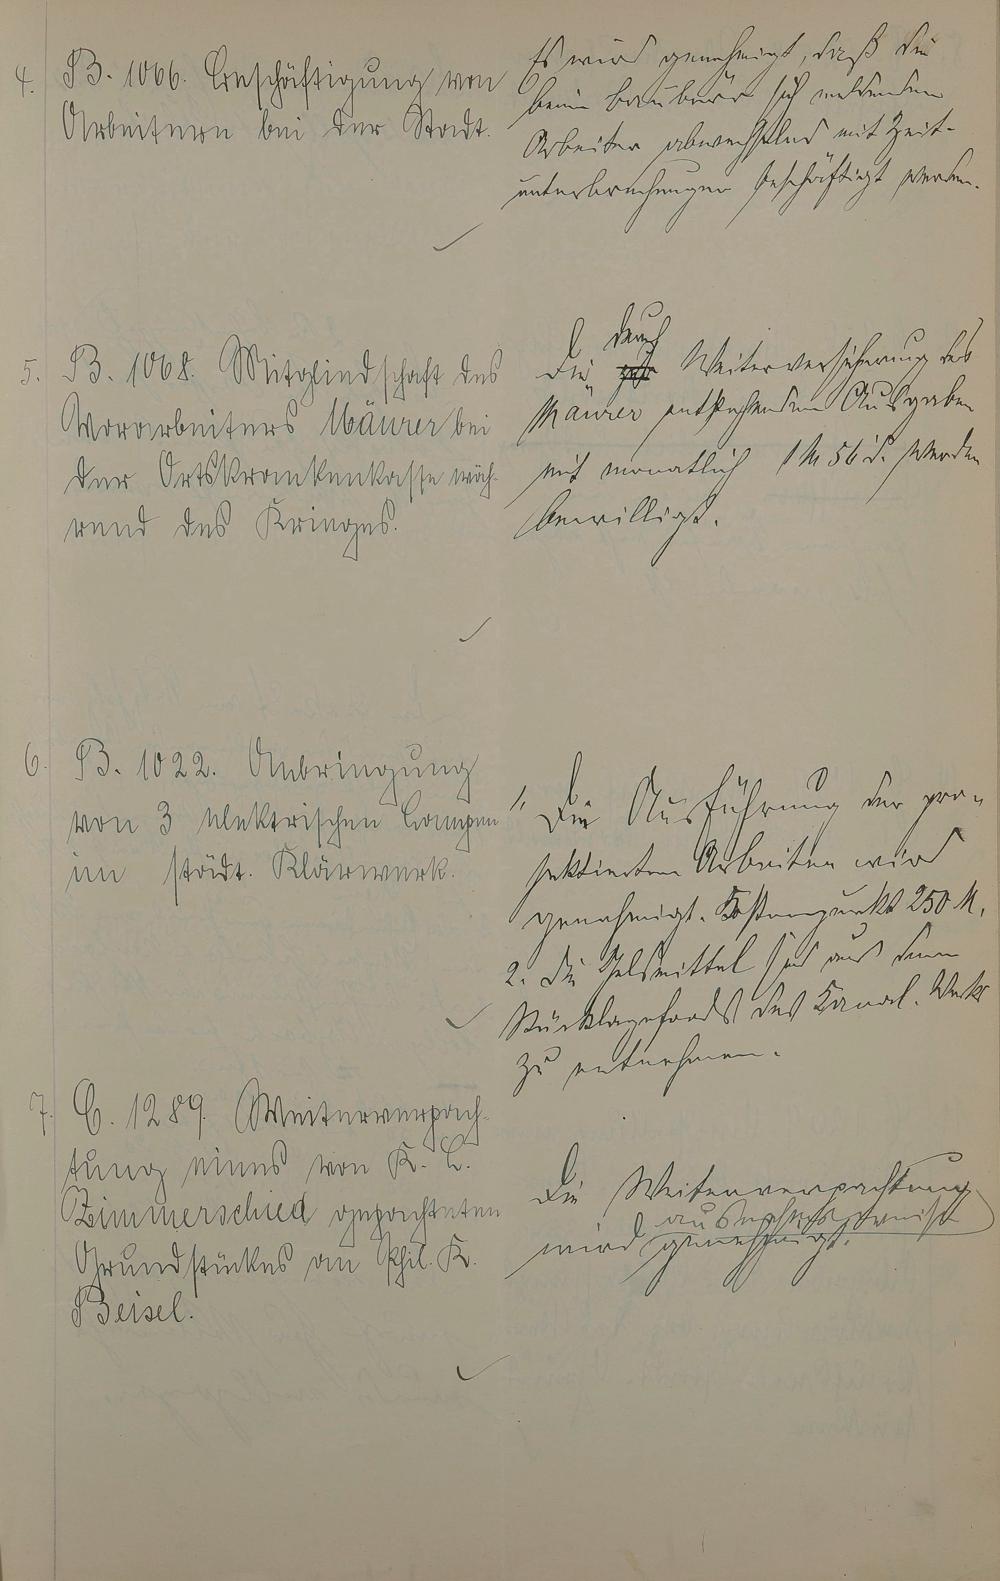 4. B. 1066. Beschäftigung von
Arbeitern bei der Stadt.
Es wird genehmigt, daß die
beim Baubüro sich meldenden
Arbeiter abwechselnd mit Zeit-
unterbrechungen beschäftigt werden.
5. B. 1068. Mitgliedschaft des
Vorarbeiters Mäurer bei
der Ortskrankenkasse wäh-
rend des Krieges.
durch
Die Weiterversicherung des
Mäurer entstehenden Ausgaben
mit monatlich 1 M 56 d. werden
bewilligt.
6. B. 1022. Anbringung
von 3 elektrischen Lampen
im städt. Klärwerk.
1. Die Ausführung der pro-
jektierten Arbeiten wird
genehmigt. Kostenpunkt 250 M.
2. Die Geldmittel sind aus dem
Rücklagefonds des Kanal. Werks
zu entnehmen.
7. C. 1289. Weiterverpach-
tung eines von K. L.
Zimmerschied gepachteten
Grundstückes an Phil. K.
Beisel.
Die Weiterverpachtung
ausnahmsweise
wird genehmigt.